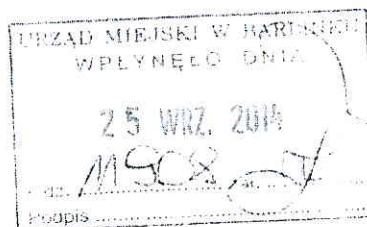 URZĄD MIEJSKI W BARLINKU
WPŁYNĘŁO DNIA
25 WRZ. 2014
dz. 11908
Podpis